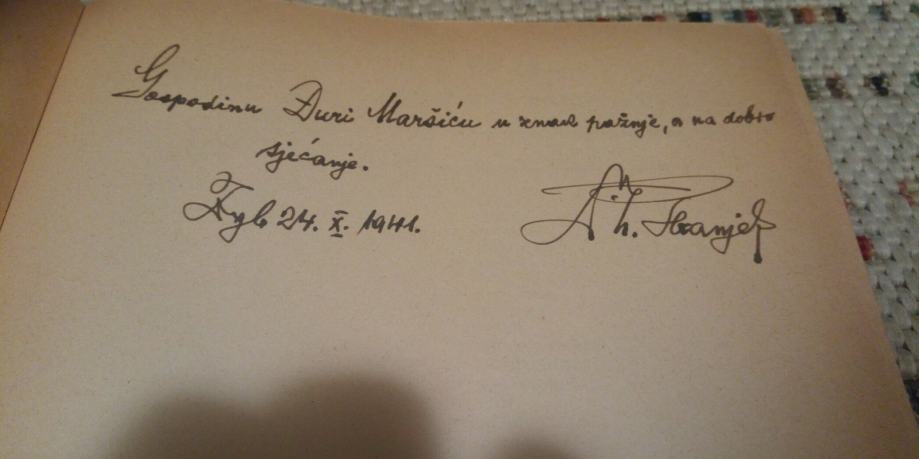 Gospodinu Đuri Maršiću u znak pažnje, a na dobro
sjećanje.
Zgb 24. X. 1941.